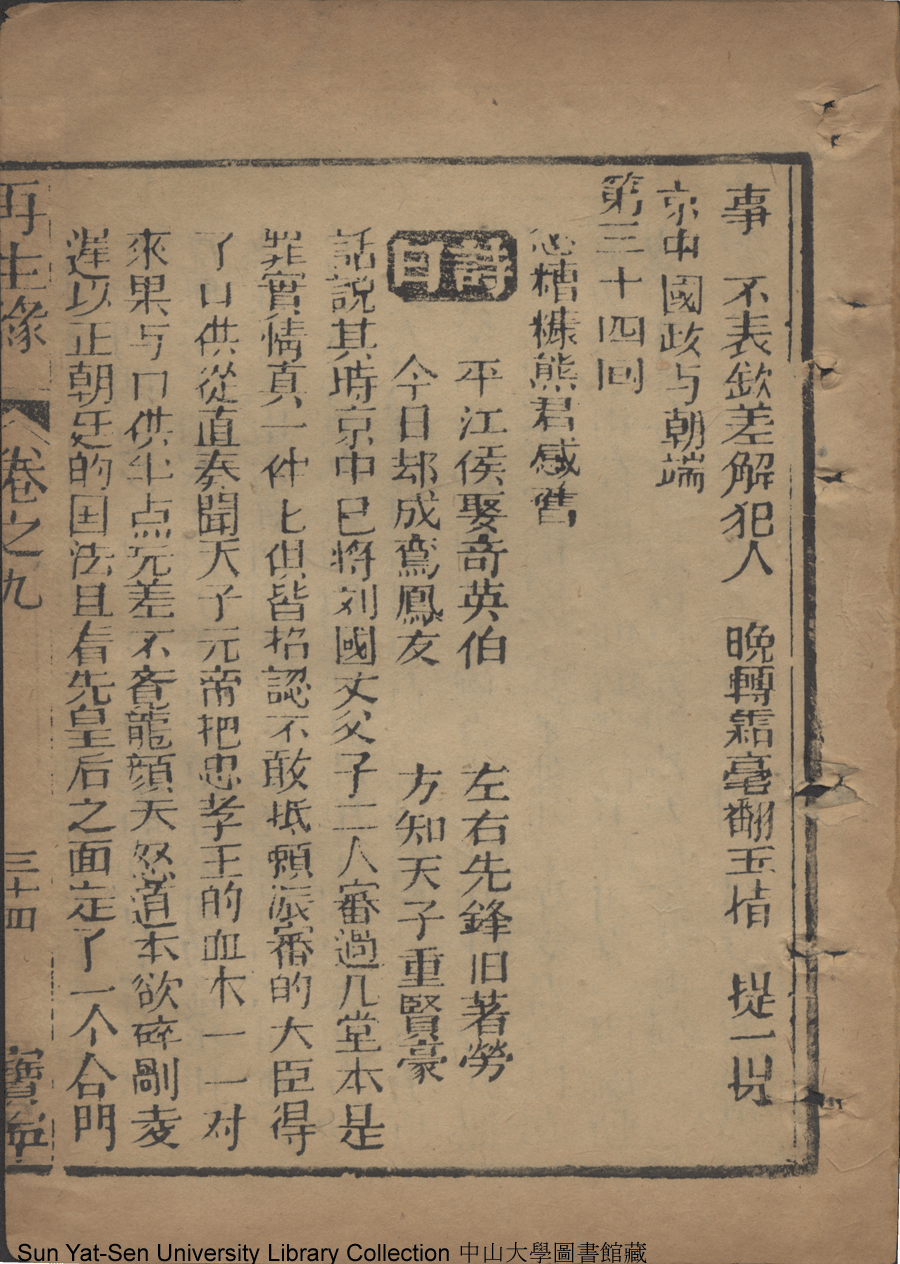 事　不表欽差解犯人　晚轉霜毫翻玉　　提一
京中國政与朝端
第三十四回
糟糠熊君感舊
詩曰
平江侯娶奇英伯　左右先鋒旧著勞
今日却成鸞鳳友　方知天子重賢豪
話說其時京中已將刘國丈父子二人審過几堂本是
罪實情真一件七俱皆招認不敢抵賴派審的大臣得
了口供從直奏聞天子元帝把忠孝王的血本一一对
來果与口供半点无差不龍顏大怒道本欲碎剮凌
遲以正朝廷的国法且看先皇后之面定了一个合門
再生緣
卷之九
三十四
寶
Sun Yat-Sen University Library Collection 中山大學圖書館藏